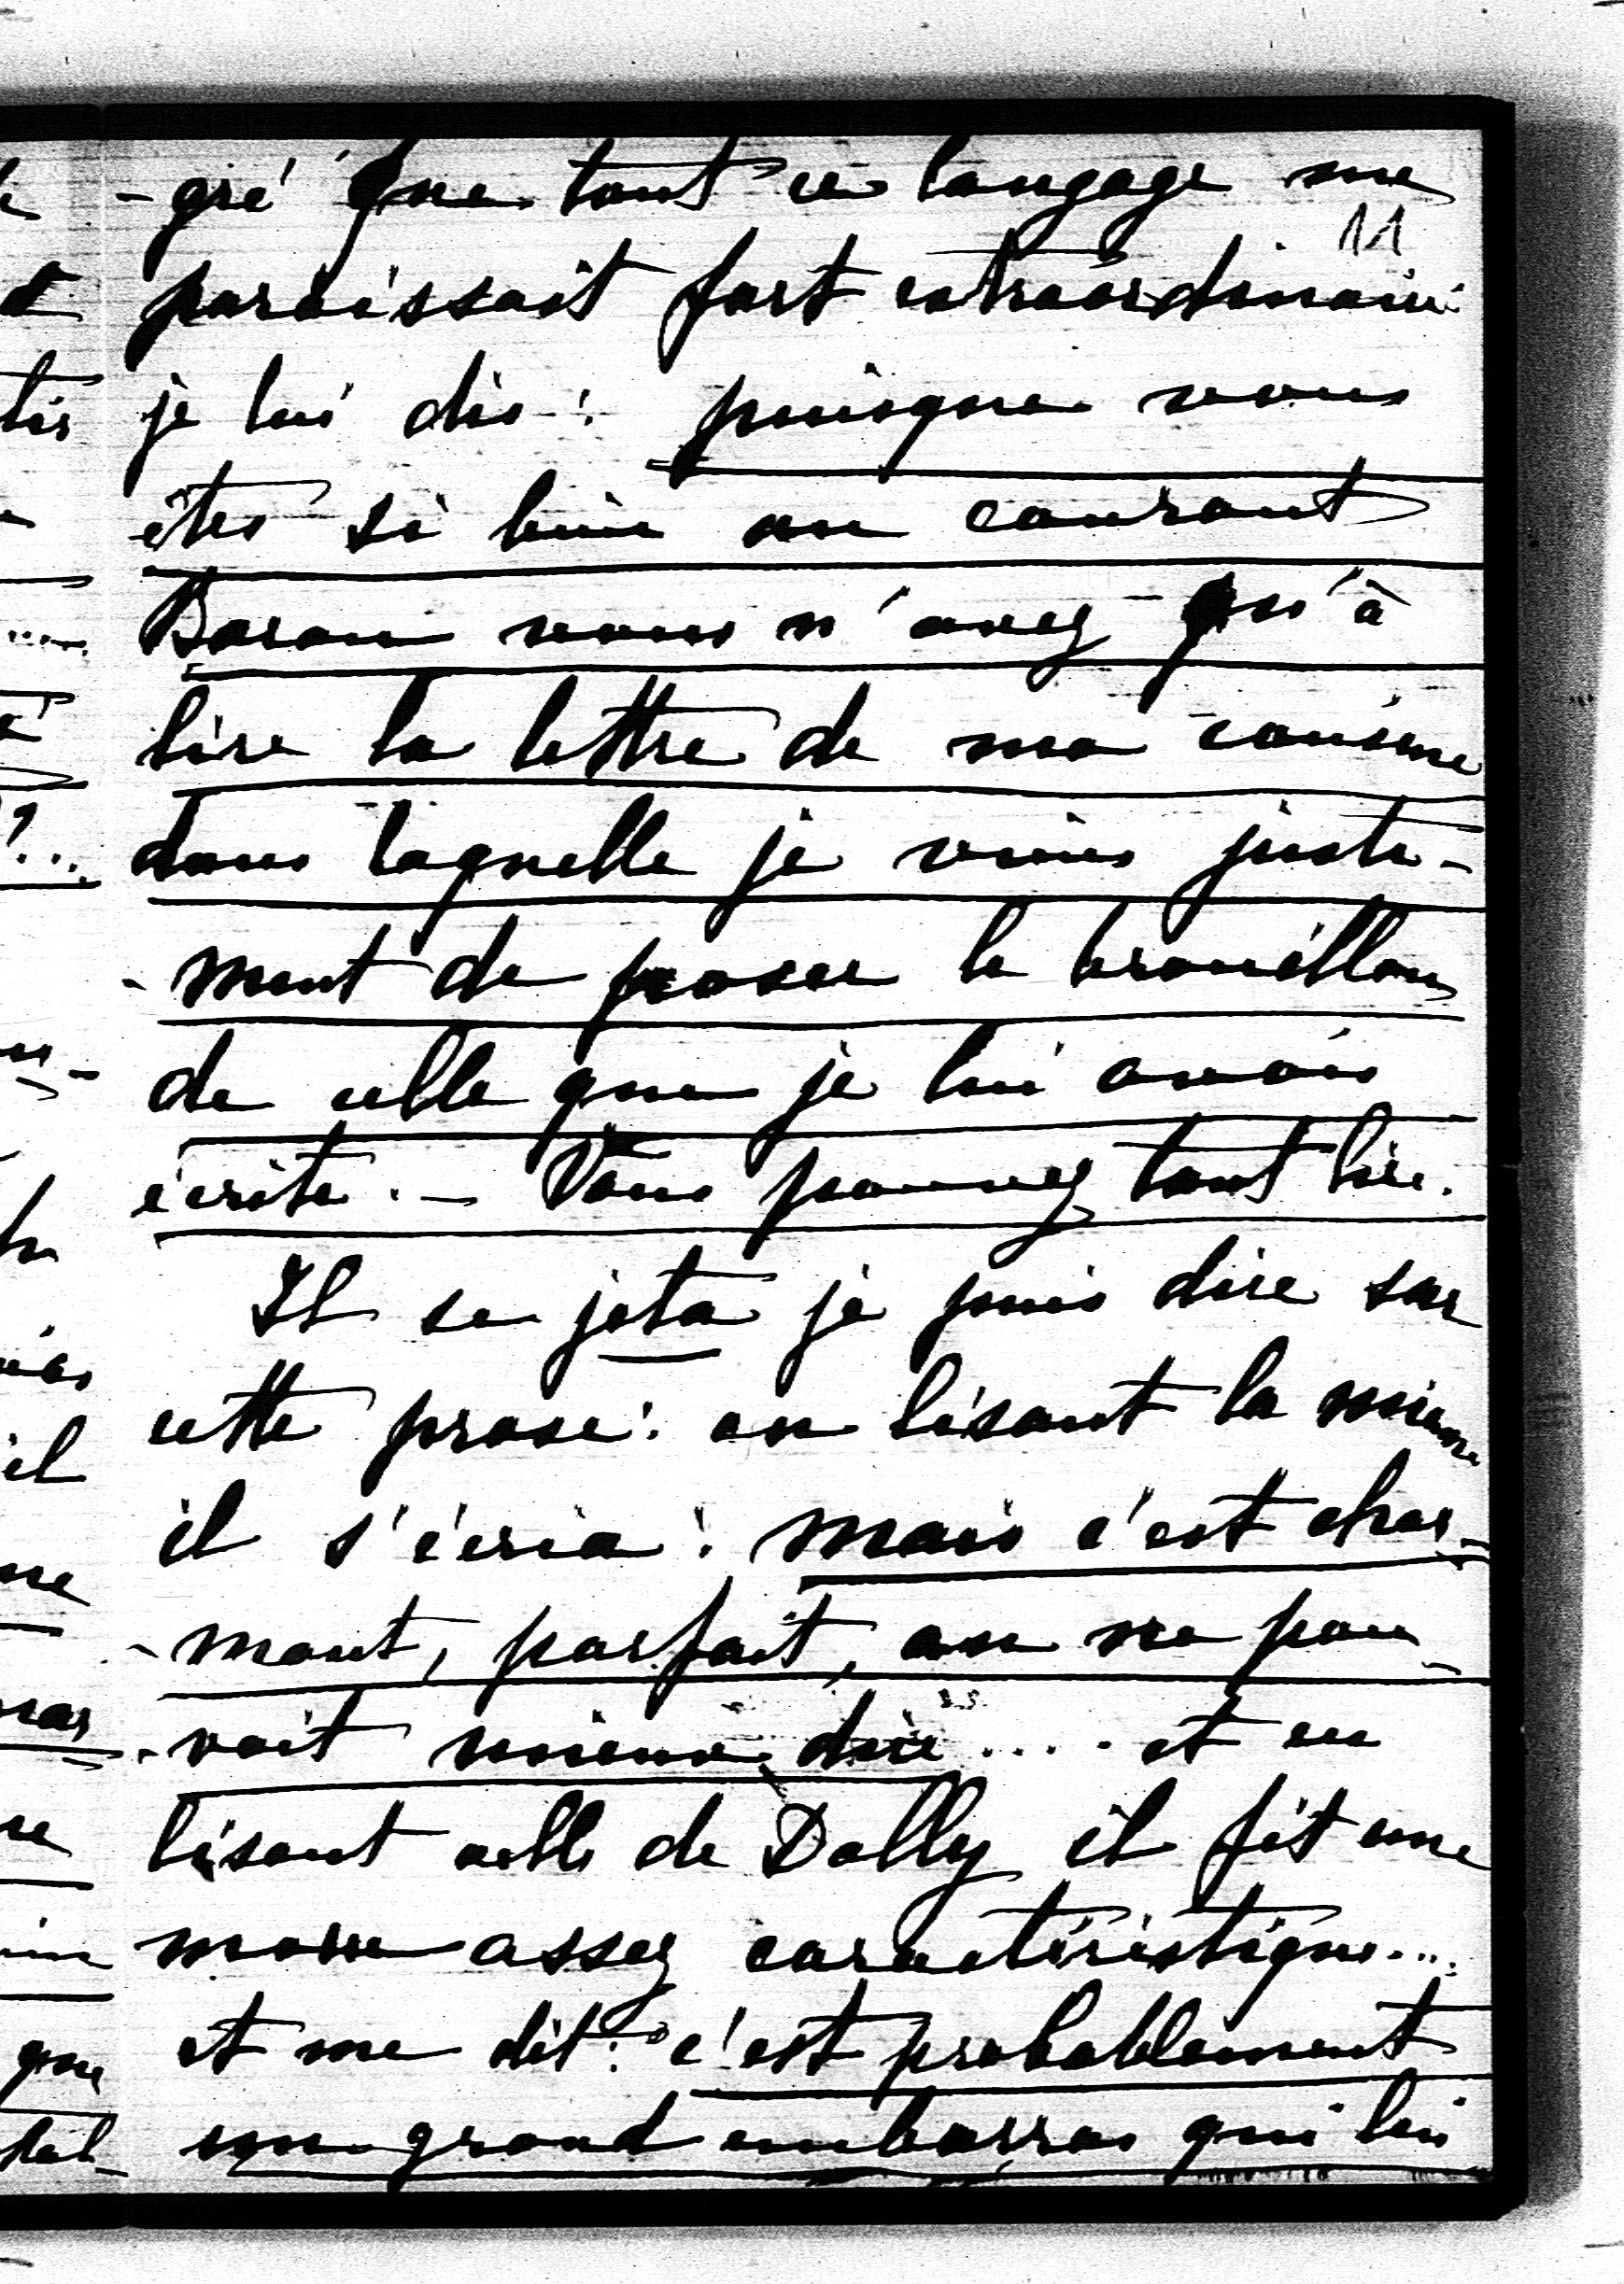 -gré que tout ce langage me
11
paraissait fort extraordinaire
je lui dis : puisque vous
êtes si bien au courant
Baron vous n'avez qu'à
lire la lettre de ma cousine
dans laquelle je viens juste-
-ment de poser le brouillon
de celle que je lui avais
écrite. — Vous pouvez tout lire.
Il se jeta je puis dire sur
cette prose : en lisant la mienne
il s'écria : mais c'est char-
-mant, parfait, on ne pou-
-vait mieux dire .... et en
lisant celle de Dolly il fit une
moue assez caractéristique...
et me dit : c'est probablement
un grand embarras qui lui